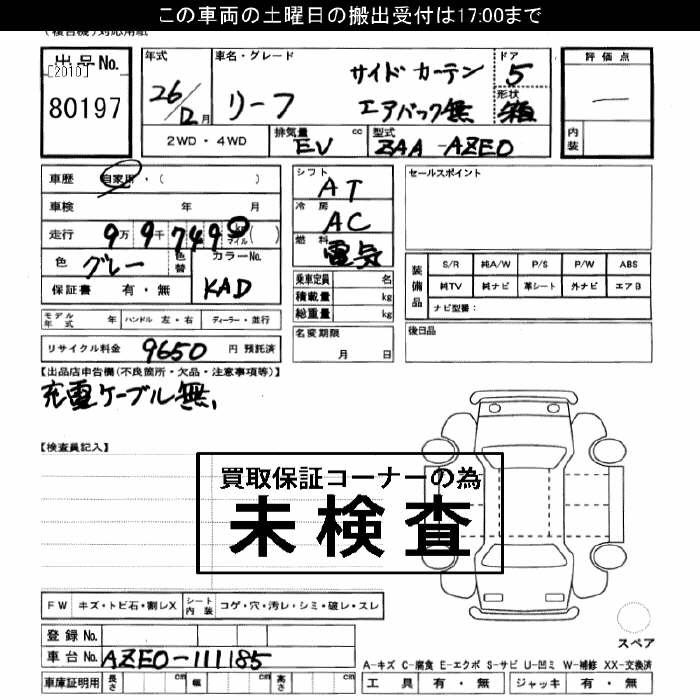 この車両の土曜日の搬出受付は17:00まで
出品No. [2010] 80197
年式 26/12月
車名・グレード リーフ サイド カーテン エアバック無
ドア 5
形状 箱
評価点 —
内装
2WD・4WD
排気量 EV cc
型式 ZAA-AZE0
車歴 自家用・( )
車検 年 月
走行 9万9千749 km マイル ( )
色 グレー 色替
カラーNo. KAD
保証書 有・無
シフト AT
冷房 AC
燃料 電気
乗車定員 名
積載量 kg
総重量 kg
セールスポイント
装備品 S/R 純A/W P/S P/W ABS
純TV 純ナビ 革シート 外ナビ エアB
ナビ型番:
モデル年式 年 ハンドル 左・右 ディーラー・並行
名変期限 月 日
後日品
リサイクル料金 9650 円 預託済
【出品店申告欄(不良箇所・欠品・注意事項等)】
充電ケーブル無,
【検査員記入】
買取保証コーナーの為
未検査
FW キズ・トビ石・割レX シート内装 コゲ・穴・汚レ・シミ・破レ・スレ
登録No.
車台No. AZE0-111185
スペア
A-キズ C-腐食 E-エクボ S-サビ U-凹ミ W-補修 XX-交換済
車庫証明用 長さ cm 幅 cm 高さ cm
工具 有・無 ジャッキ 有・無